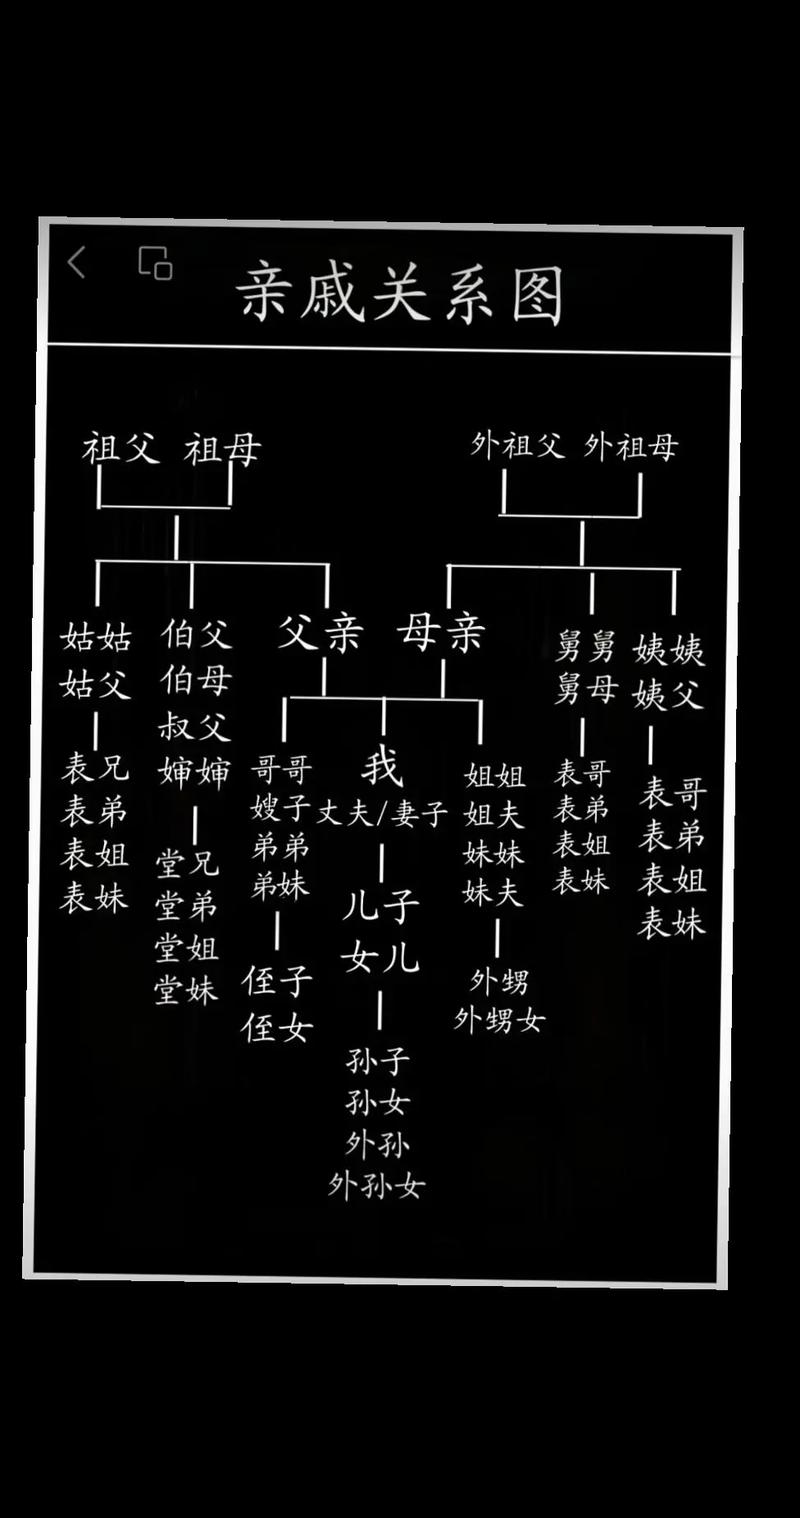 亲戚关系图
祖父 祖母
外祖父 外祖母
姑姑
姑父
表兄
表弟
表姐
表妹
伯父
伯母
叔父
婶婶
堂兄
堂弟
堂姐
堂妹
父亲
母亲
哥哥
嫂子
弟弟
弟妹
侄子
侄女
我
丈夫/妻子
儿子
女儿
孙子
孙女
外孙
外孙女
姐姐
姐夫
妹妹
妹夫
外甥
外甥女
舅舅
舅母
表哥
表弟
表姐
表妹
姨姨
姨父
表哥
表弟
表姐
表妹